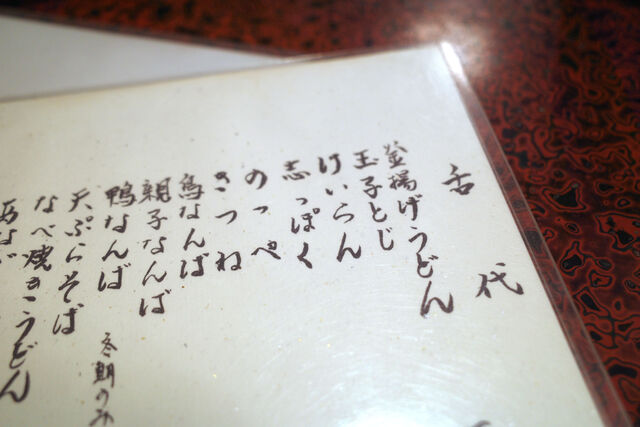 舌代
釜揚げうどん
玉子とじ
けいらん
志っぽく
のっぺ
きつね
鳥なんば
親子なんば
鴨なんば
冬期のみ
天ぷらそば
なべ焼きうどん